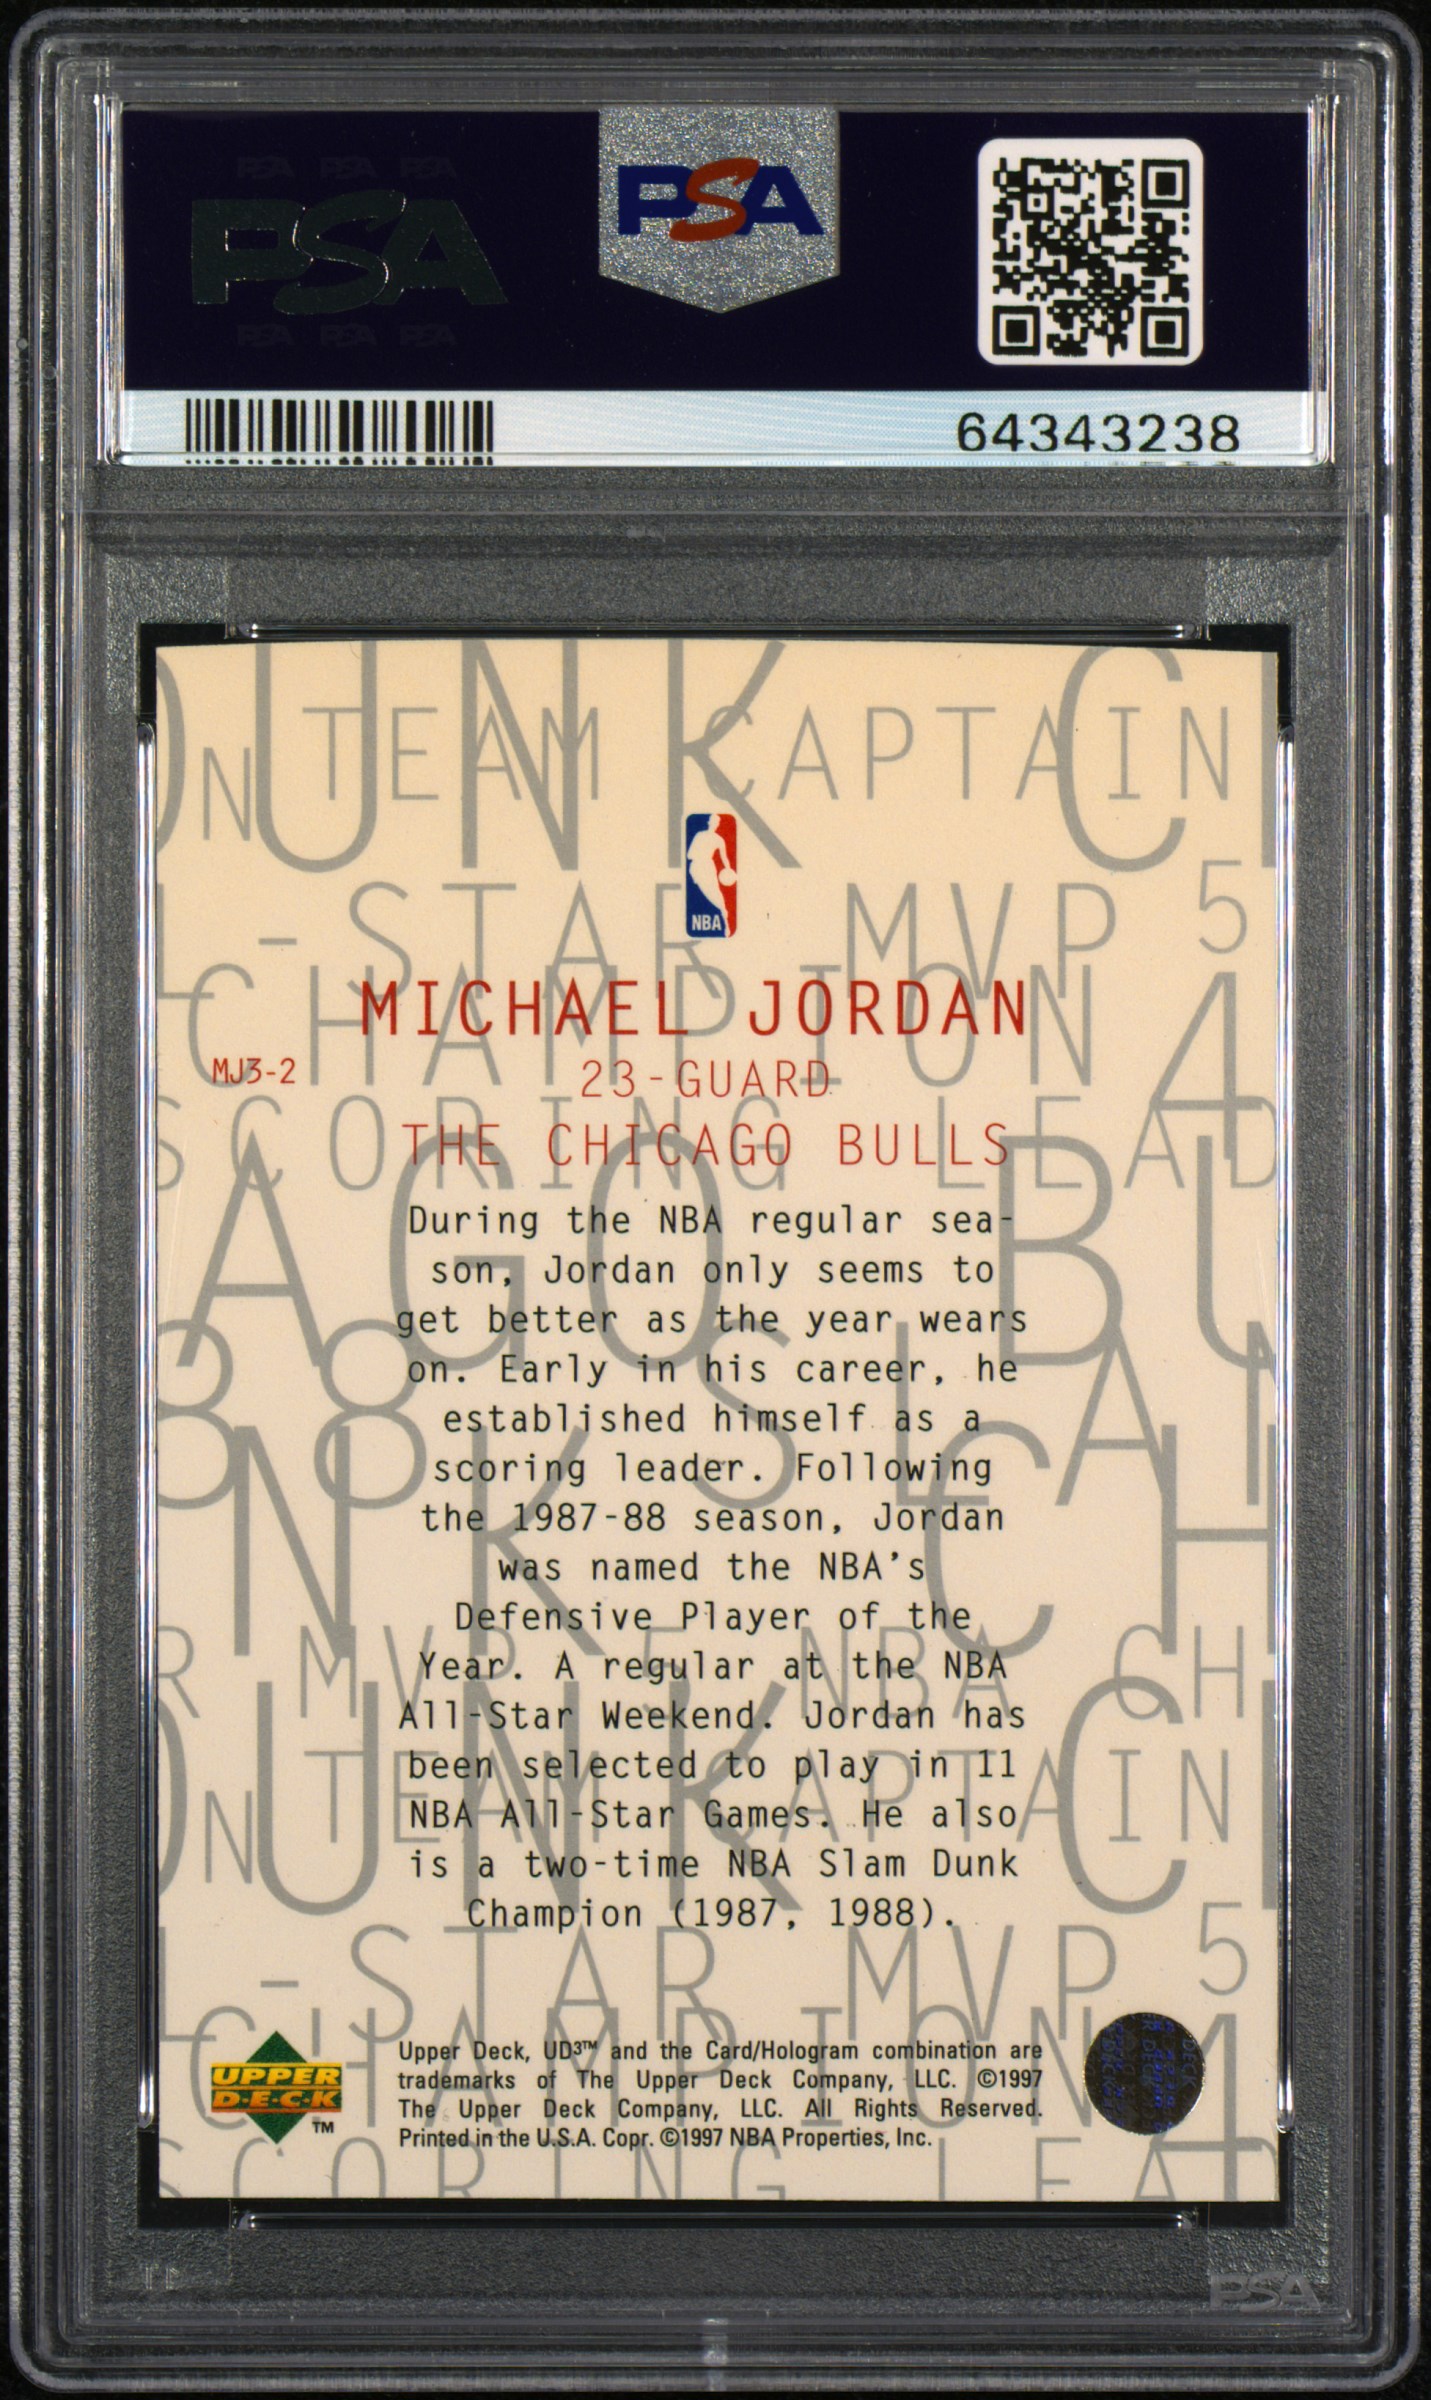 PSA PSA PSA
PSA
PSA PSA PSA
PSA
64343238
DUNK C
N TEAM CAPTAIN
NBA
L-STAR MVP 5
CHAMPION 4
MICHAEL JORDAN
MJ3-2
23-GUARD
SCORING LEAD
THE CHICAGO BULLS
AGO BU
During the NBA regular sea-
son, Jordan only seems to
get better as the year wears
on. Early in his career, he
established himself as a
scoring leader. Following
the 1987-88 season, Jordan
was named the NBA's
Defensive Player of the
Year. A regular at the NBA
All-Star Weekend. Jordan has
been selected to play in 11
NBA All-Star Games. He also
is a two-time NBA Slam Dunk
Champion (1987, 1988).
88 SLA
NK CH
R MVP 5 NBA CH
DUNK C
N TEAM CAPTAIN
L-STAR MVP 5
CHAMPION 4
UPPER
D·E·C·K
TM
Upper Deck, UD3™ and the Card/Hologram combination are
trademarks of The Upper Deck Company, LLC. ©1997
The Upper Deck Company, LLC. All Rights Reserved.
Printed in the U.S.A. Copr. ©1997 NBA Properties, Inc.
SCORING LEAD
PSA